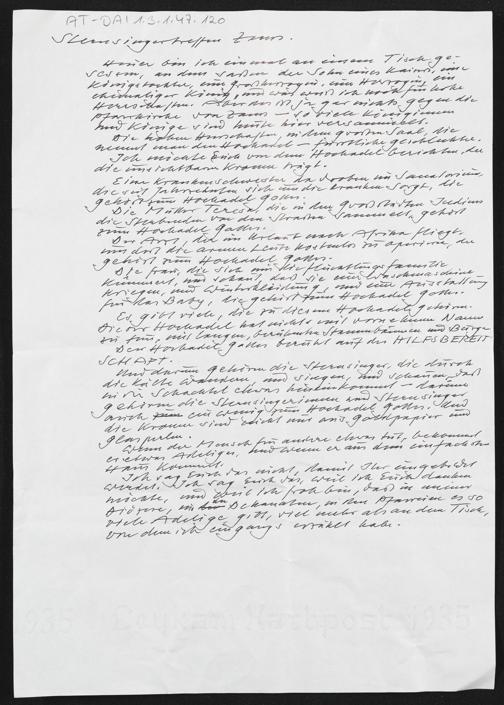 AT-DAI 1.3.1.47.120
Sternsingertreffen Zams.
Heuer bin ich einmal an einem Tisch ge-
sessen, an dem saßen der Sohn eines Kaisers, eine
Königstochter, ein Großherzog, ein Herzog, ein
ehemaliger König, und was weiß ich noch für hohe
Herrschaften. Aber das ist ja gar nichts gegen die
Pfarrkirche von Zams - so viele Königinnen
und Könige sind heute hier versammelt.
Die hohen Herrschaften, in dem großen Saal, die
nennt man den Hochadel - fürstliche Geschlechter.
Ich möchte Euch von dem Hochadel berichten, der
die unsichtbare Krone trägt.
Eine Krankenschwester da droben im Sanatorium,
die seit Jahrzehnten sich um die Kranken sorgt, die
gehört zum Hochadel Gottes.
Die Mutter Teresa, die in den Großstädten Indiens
die Sterbenden von den Straßen sammelt, gehört
zum Hochadel Gottes.
Der Arzt, der im Urlaub nach Afrika fliegt,
um dort die armen Leute kostenlos zu operieren, der
gehört zum Hochadel Gottes.
Die Frau, die sich um die Flüchtlingsfamilie
kümmert, und schaut, daß sie eine Waschmaschine
kriegen, und Winterkleidung, und eine Ausstattung
für das Baby, die gehört zum Hochadel Gottes.
Es gibt viele, die zu diesem Hochadel gehören.
Dieser Hochadel hat nichts mit vornehmen Namen
zu tun, mit langen, berühmten Stammbäumen und Burgen
Der Hochadel Gottes beruht auf der HILFSBEREIT
SCHAFT.
Und darum gehören die Sternsinger, die durch
die Kälte wandern, und singen, und schauen, daß
in die Schachtel etwas hineinkommt - darum
gehören die Sternsingerinnen und Sternsinger
auch ein wenig zum Hochadel Gottes. Und
die Kronen sind nicht nur aus Goldpapier und
Glasperlen.
Wenn der Mensch für andere etwas tut, bekommt
er etwas Adeliges, auch wenn er aus dem einfachsten
Haus kommt.
Ich sag Euch das nicht, damit Ihr eingebildet
werdet. Ich sag Euch das, weil ich Euch danken
möchte, und weil ich froh bin, daß in unserer
Diözese, in den Dekanaten, in den Pfarreien es so
viele Adelige gibt, viel mehr als an dem Tisch,
von dem ich eingangs erzählt habe.
1935
1935